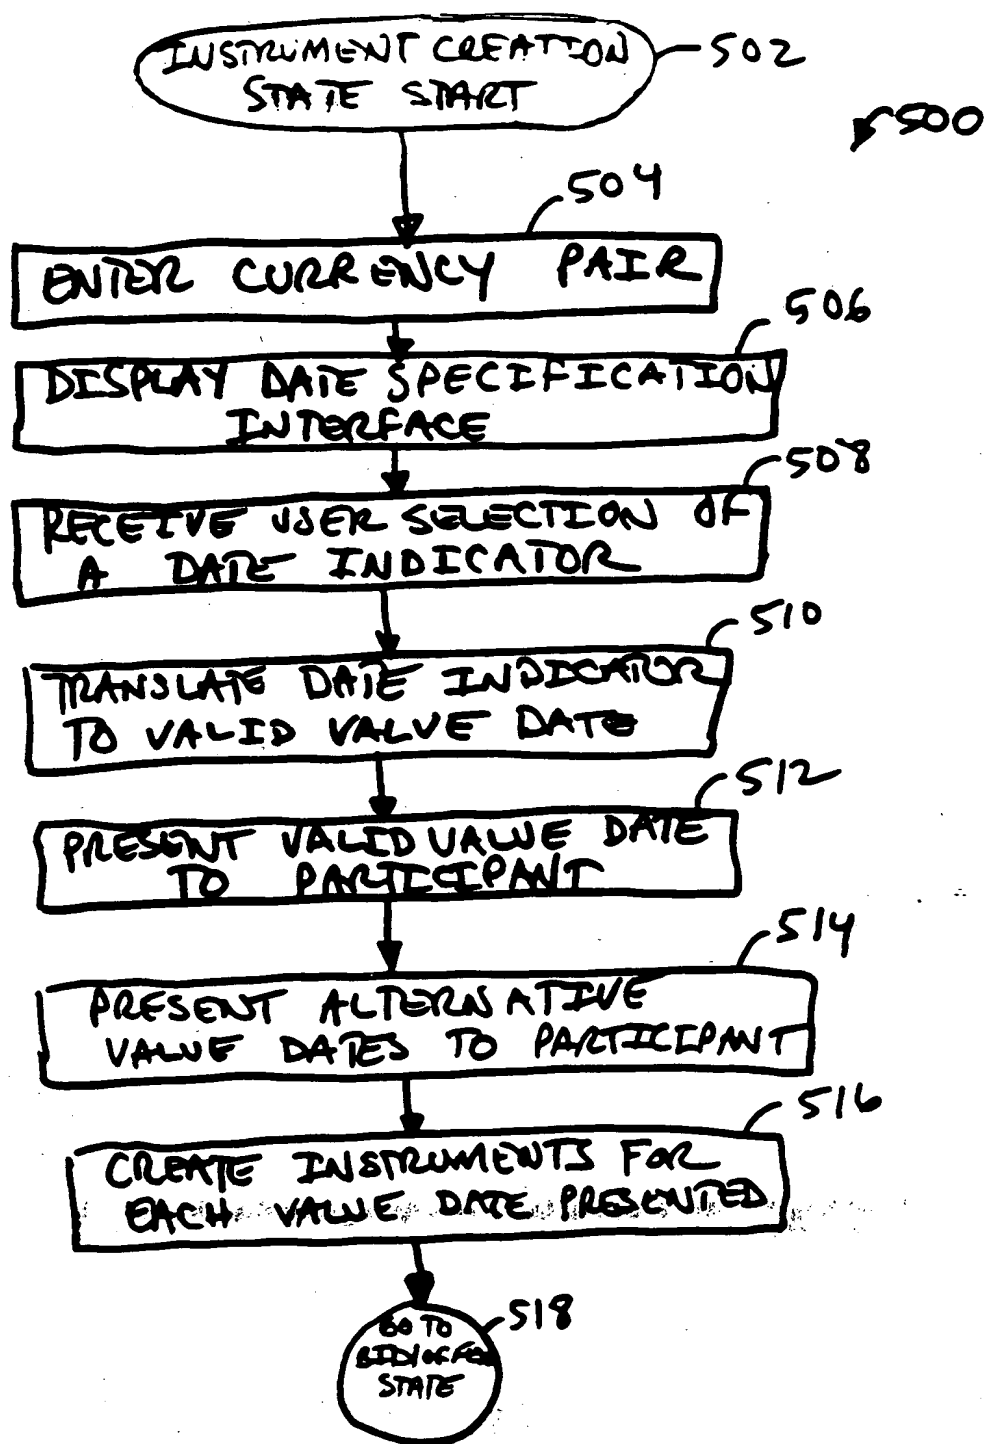 INSTRUMENT CREATION
STATE START
502
500
504
ENTER CURRENCY PAIR
506
DISPLAY DATE SPECIFICATION
INTERFACE
508
RECEIVE USER SELECTION OF
A DATE INDICATOR
510
TRANSLATE DATE INDIDCATOR
TO VALID VALUE DATE
512
PRESENT VALID VALUE DATE
TO PARTICIPANT
514
PRESENT ALTERNATIVE
VALUE DATES TO PARTICIPANT
516
CREATE INSTRUMENTS FOR
EACH VALUE DATE PRESENTED
518
GO TO
BID/OFFER
STATE